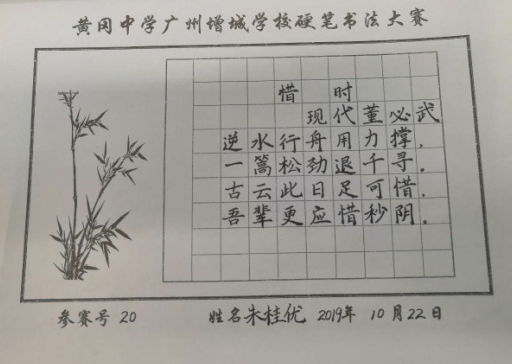 黄冈中学广州增城学校硬笔书法大赛
惜 时
现代董必武
逆水行舟用力撑，
一篙松劲退千寻。
古云此日足可惜，
吾辈更应惜秒阴。
参赛号 20 姓名朱桂优 2019年 10月22日